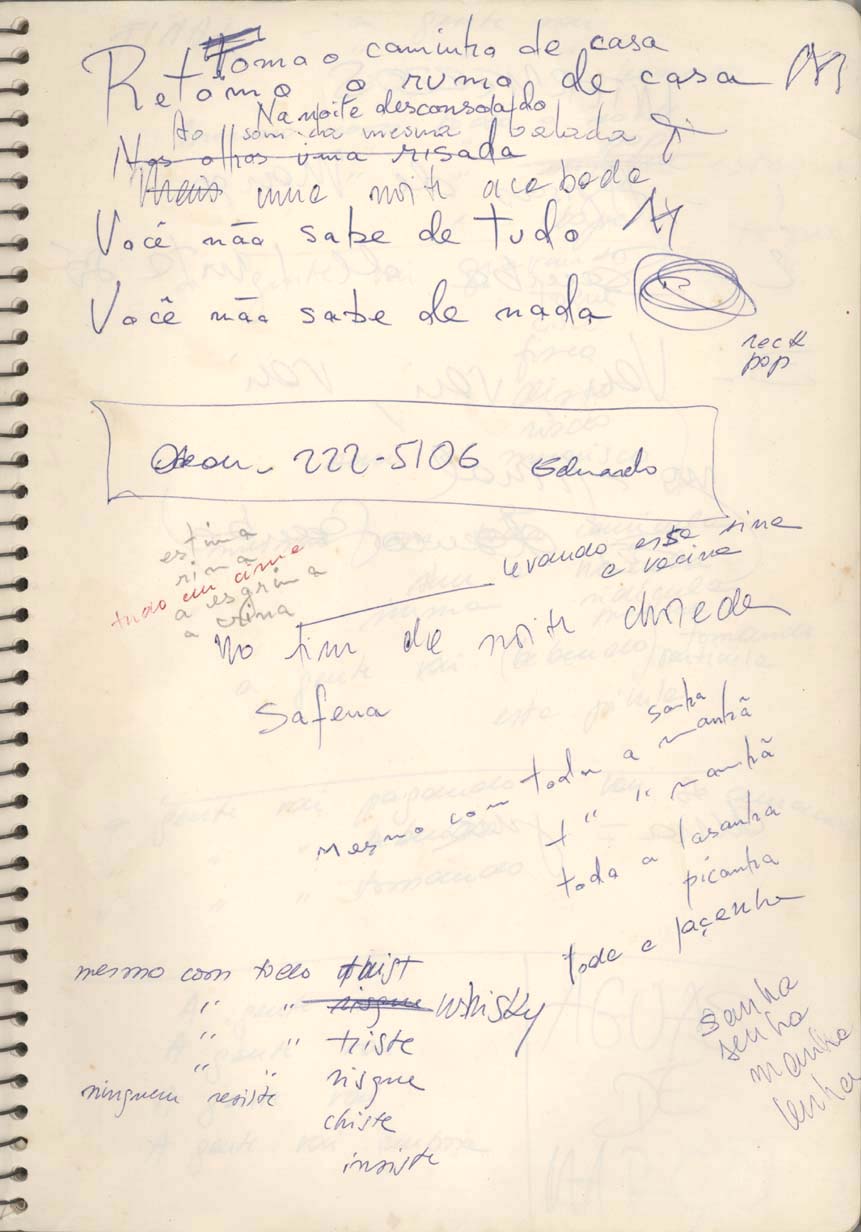 Toma o caminho de casa
Retomo o rumo de casa
Na noite desconsolado
Ao som da mesma balada
Nos olhos uma risada
Mais uma noite acabada
Você não sabe de tudo
Você não sabe de nada
rock
pop
222-5106 Eduardo
estima
rima
tudo em cima
a esgrima
a crina
levando essa sina
e vacina
No fim de noite
Safena
sanha
mesmo com toda a manhã
t " " manhã
toda a lasanha
picanha
toda a façanha
mesmo com todo twist
" " risque whisky
" " triste
" " risque
ninguem resiste
chiste
insiste
sanha
senha
manha
lenha